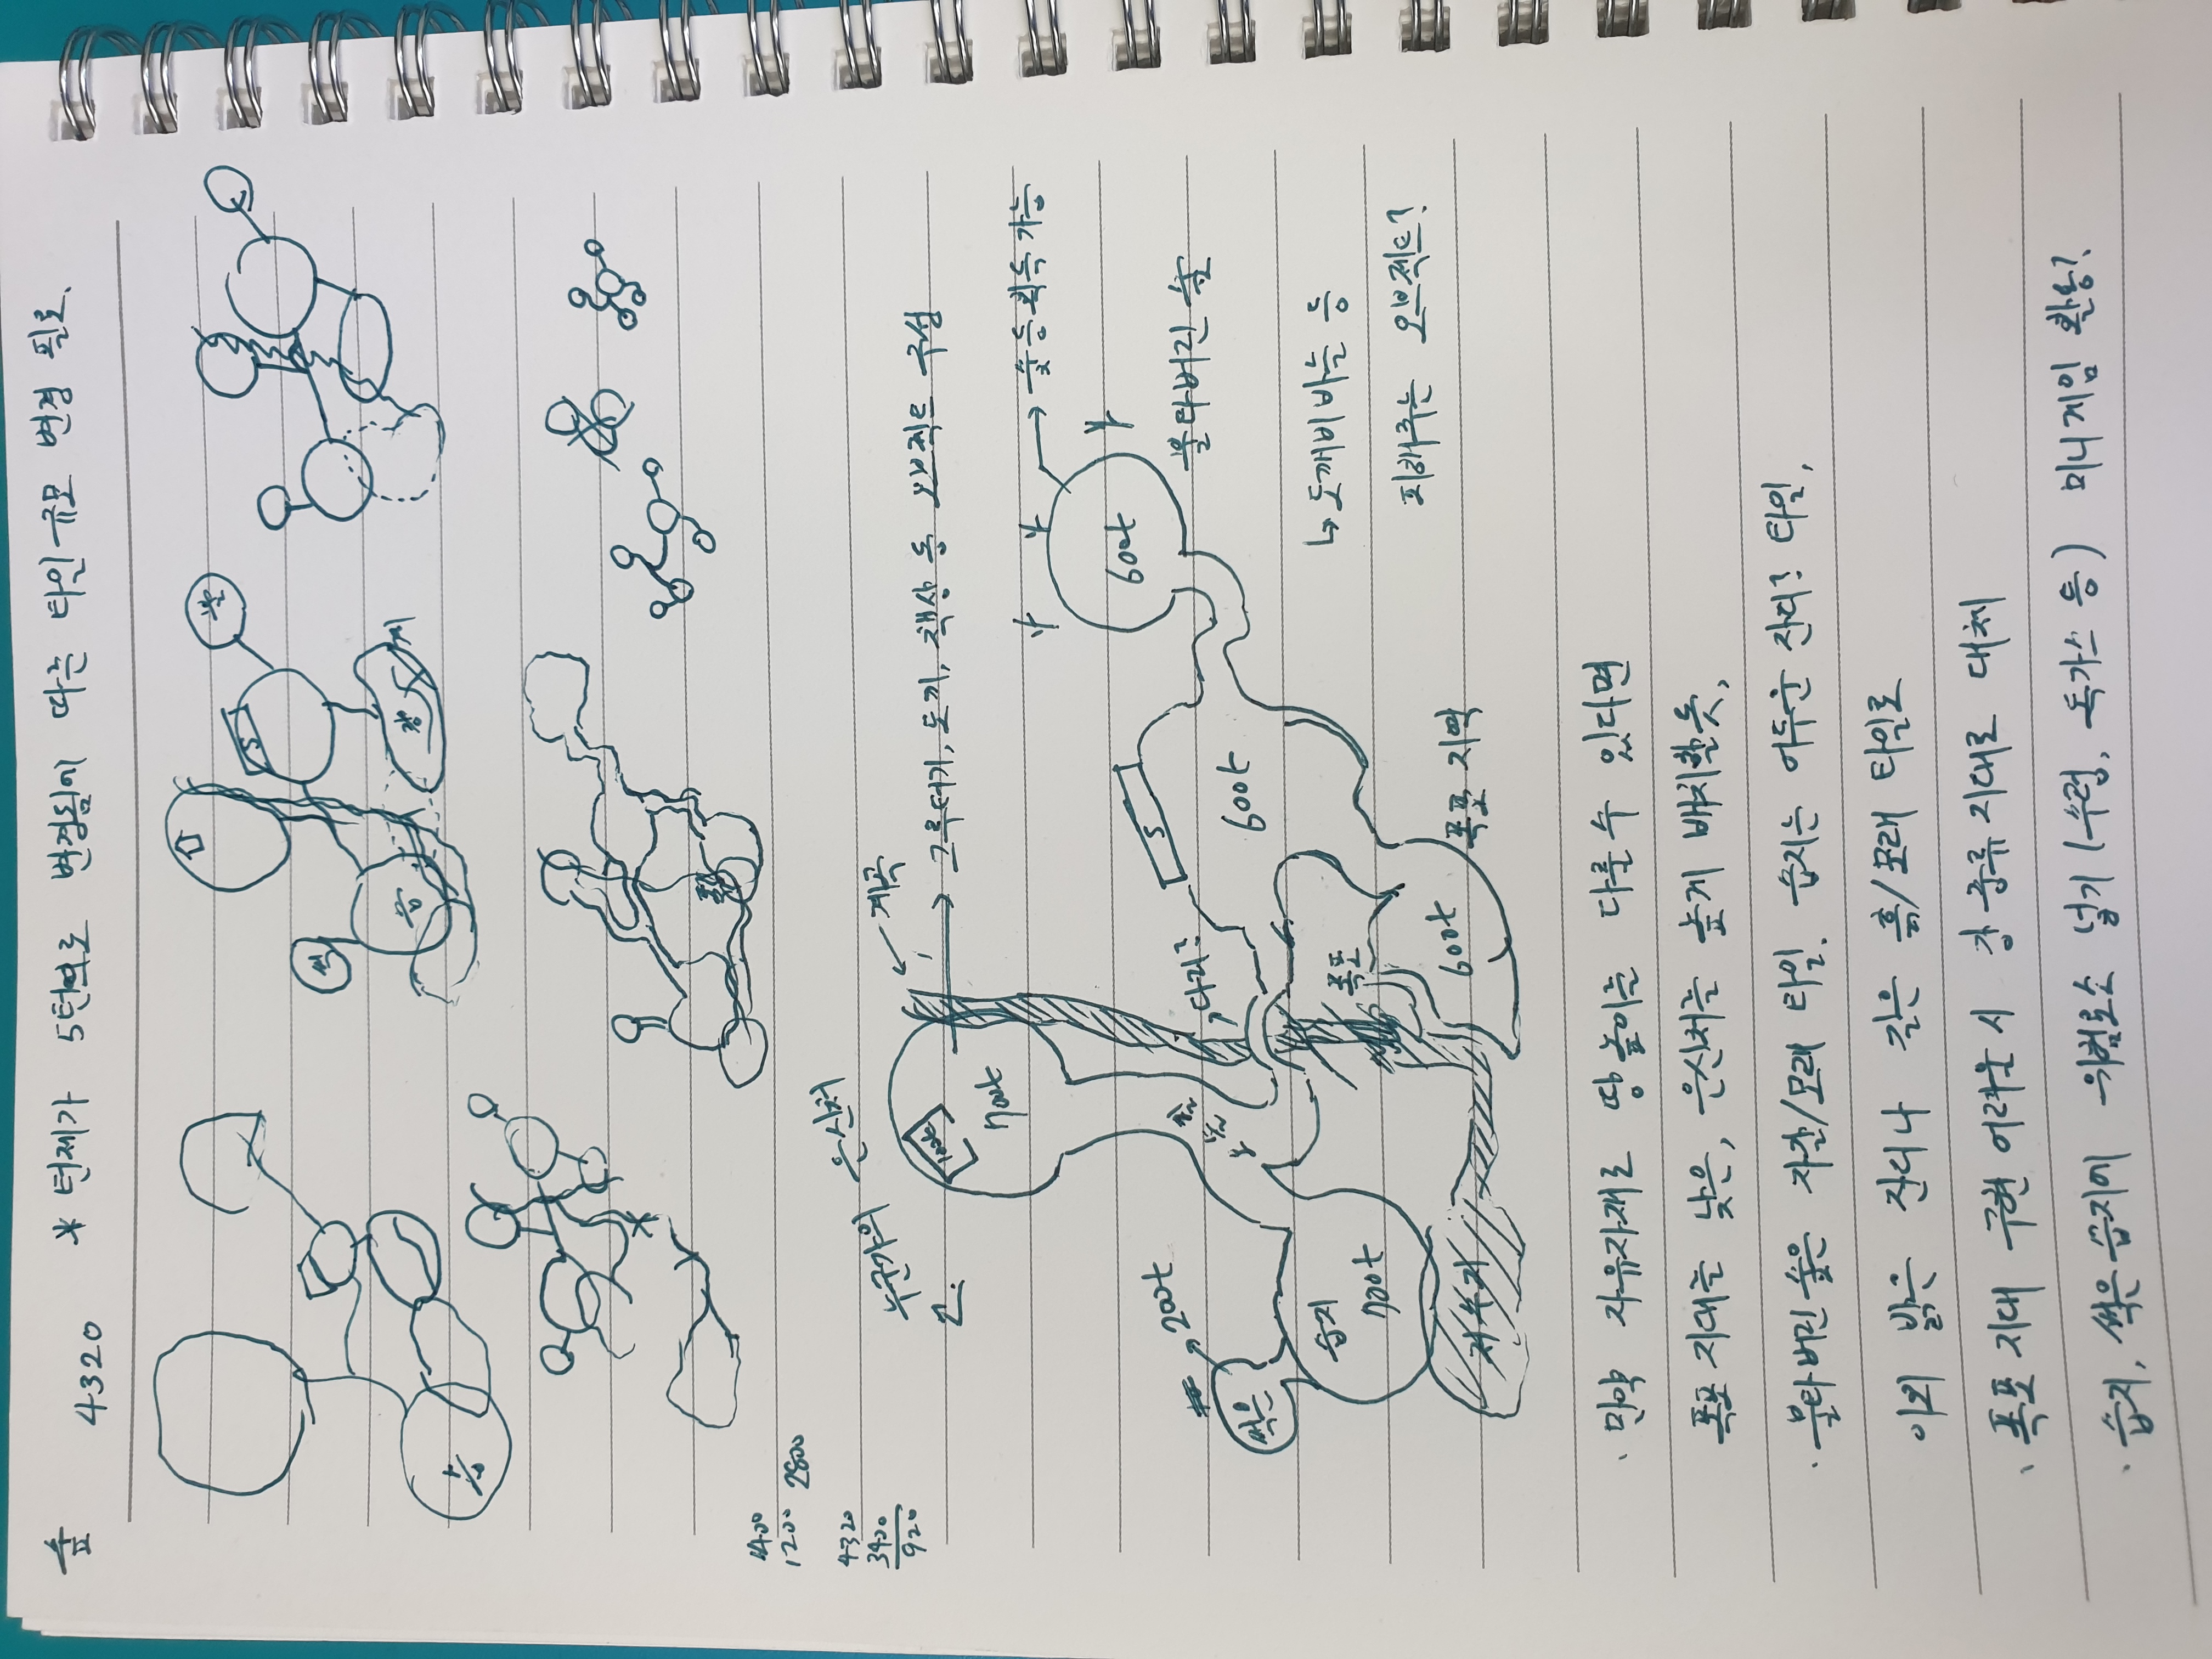 숲
4320 * 턴제가 5턴으로 변경됨에 따른 타일 규모 변경 필요.
S 불
썩
습 강
습
폭포
4400
1200 2800
4320
3400
920
누군가의 은신처
계곡
100t
700t
그루터기, 도끼, 책상 등 오브젝트 구성
숯 등 획득 가능
600t
불타버린 숲
200t
다리?
S
600t
썩은
습지
700t
폭포
↳ 도깨비바늘 등
피해주는 오브젝트?
저수지
600t
폭포 지역
· 만약 자유자재로 땅 높이를 다룰 수 있다면
폭포 지대는 낮은, 은신처는 높게 배치할 듯,
· 불타버린 숲은 자갈/모래 타일. 습지는 어두운 잔디? 타일,
이외 밝은 잔디나 길은 흙/모래 타일로
· 폭포 지대 구현 어려울 시 강 중류 지대로 대체
· 습지, 썩은 습지에 위험요소 넣기 (수렁, 독가스 등) 미니게임 활용?